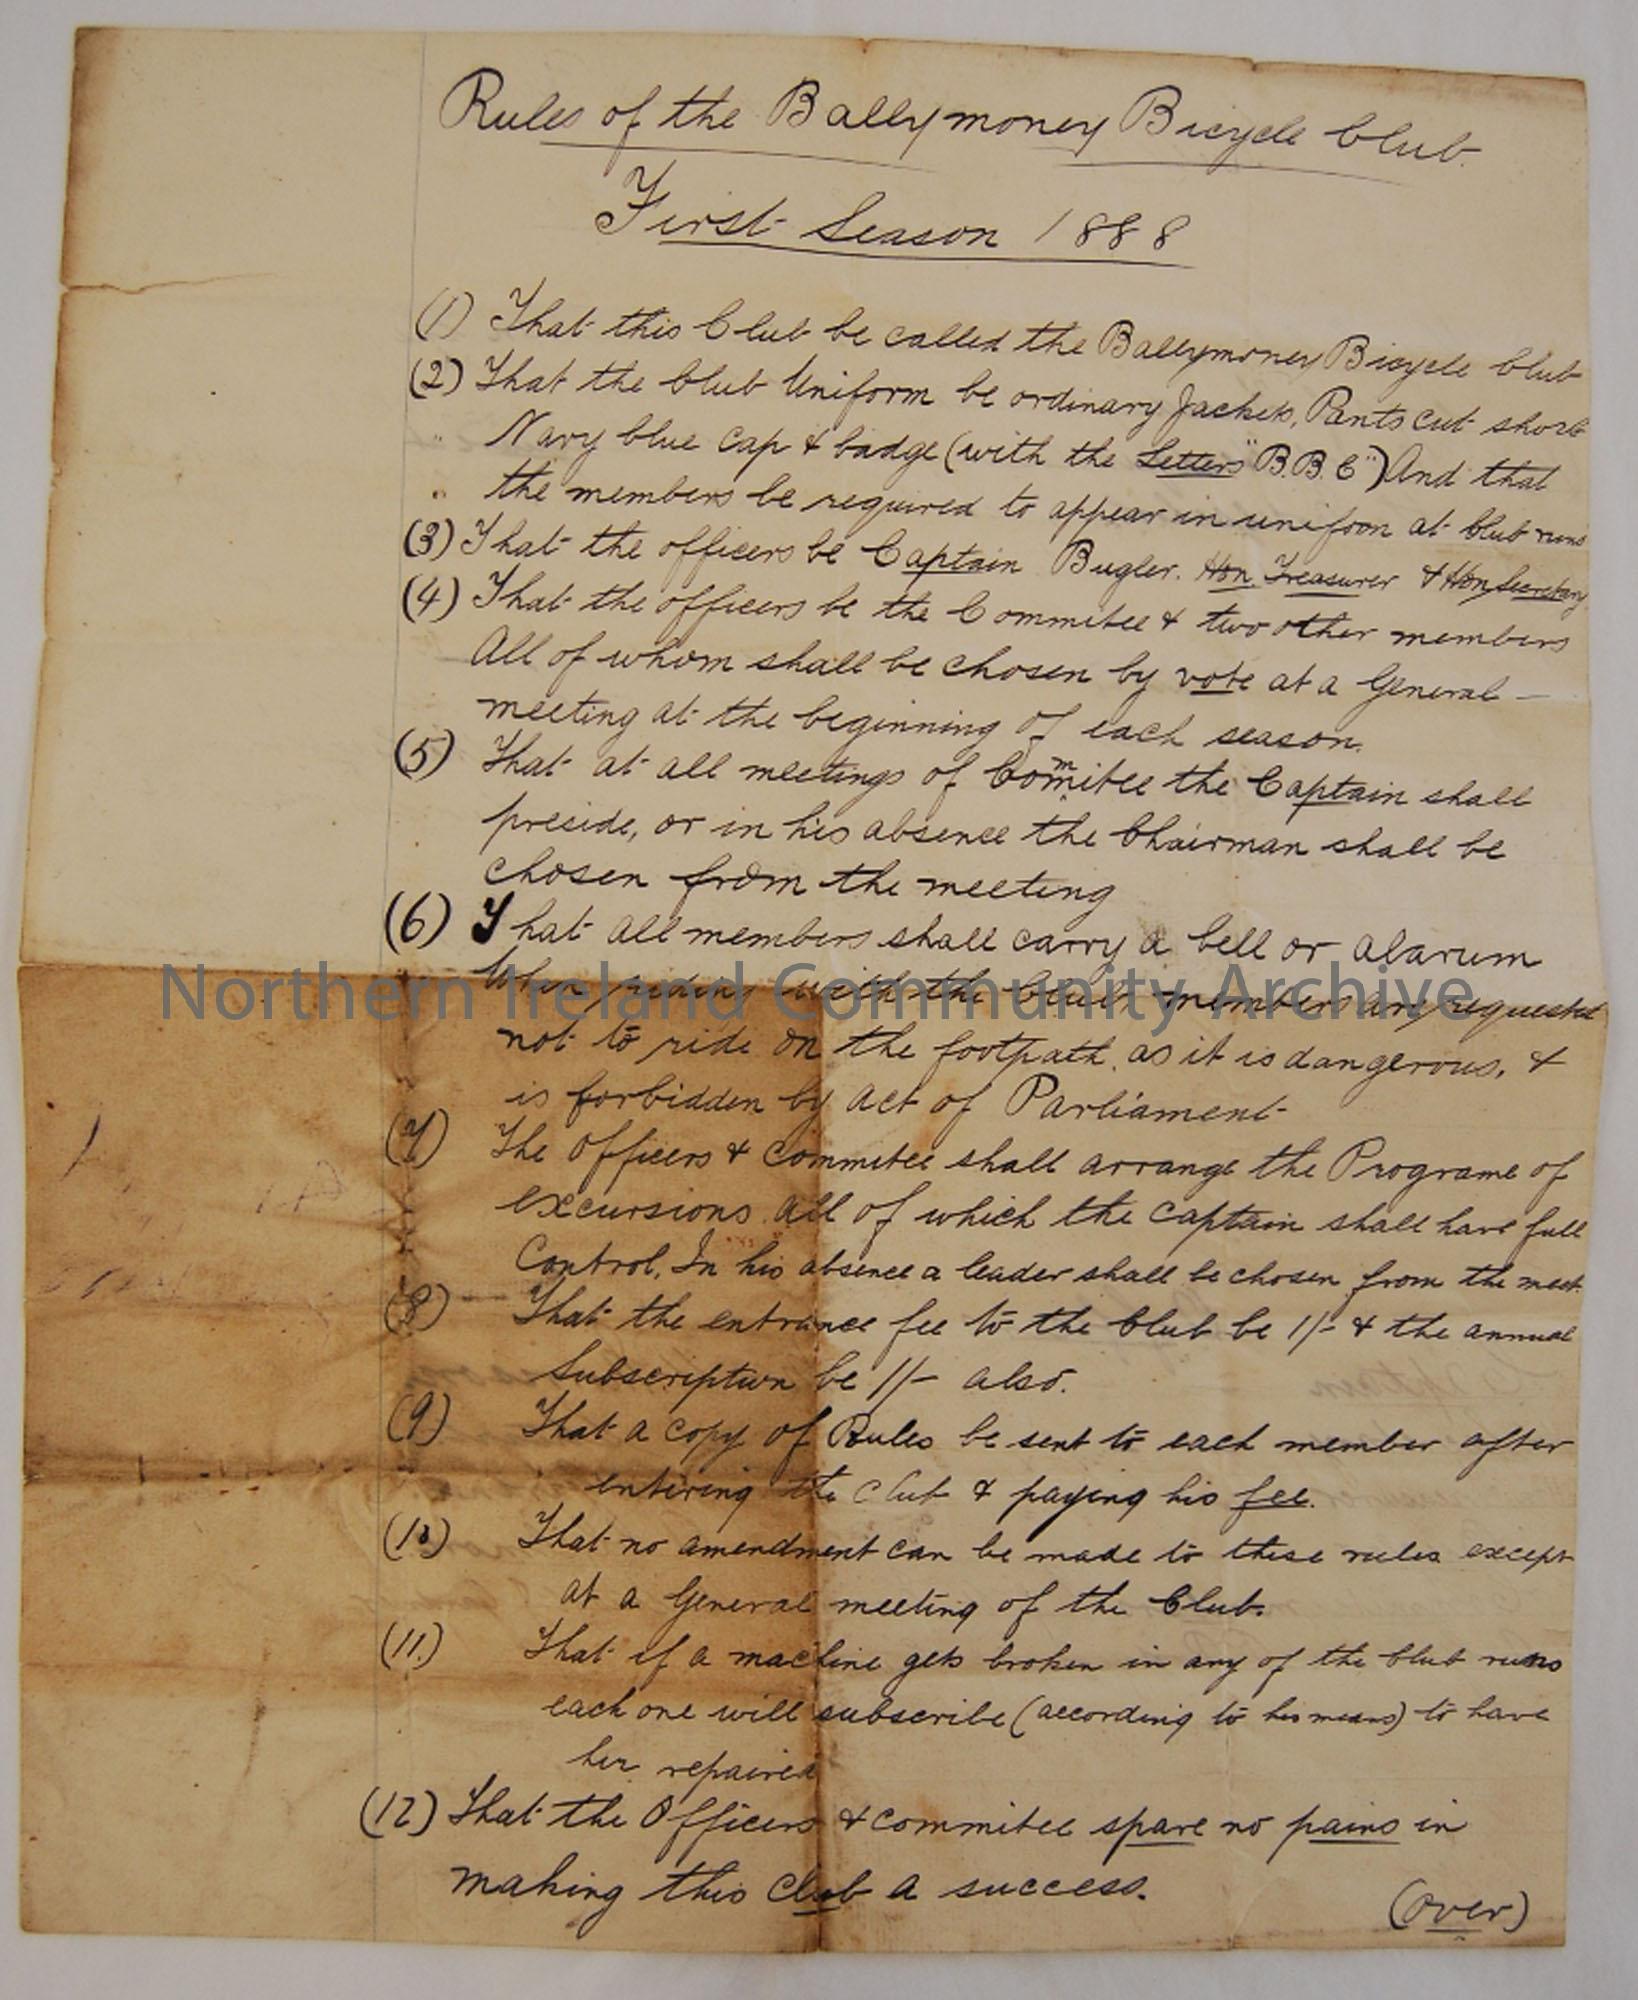 Rules of the Ballymoney Bicycle Club.
First Season 1888
(1) That this Club be called the Ballymoney Bicycle Club
(2) That the Club Uniform be ordinary Jackets, Pants cut short
" Navy blue cap & badge (with the Letters "B.B.C") And that
" the members be required to appear in uniform at Club runs
(3) That the officers be Captain Bugler. Hon. Treasurer & Hon Secretary
(4) That the officers be the Commitee & two other members
All of whom shall be chosen by vote at a General —
meeting at the beginning of each season.
(5) That at all meetings of Commitee the Captain shall
preside, or in his absence the Chairman shall be
chosen from the meeting
(6) That all members shall carry a bell or alarum
When riding with the Club, members are requested
not to ride on the footpath, as it is dangerous, &
is forbidden by act of Parliament
(7) The Officers & Commitee shall arrange the Programe of
excursions all of which the Captain shall have full
Control, In his absence a leader shall be chosen from the meet.
(8) That the entrance fee to the Club be 1/- & the annual
Subscription be 1/- also.
(9) That a copy of Rules be sent to each member after
entering the Club & paying his fee.
(10) That no amendment can be made to these rules except
at a General meeting of the Club.
(11.) That if a machine gets broken in any of the Club runs
each one will subscribe (according to his means) to have
her repaired
(12) That the Officers & Commitee spare no pains in
making this Club a success.
(over)
Northern Ireland Community Archive